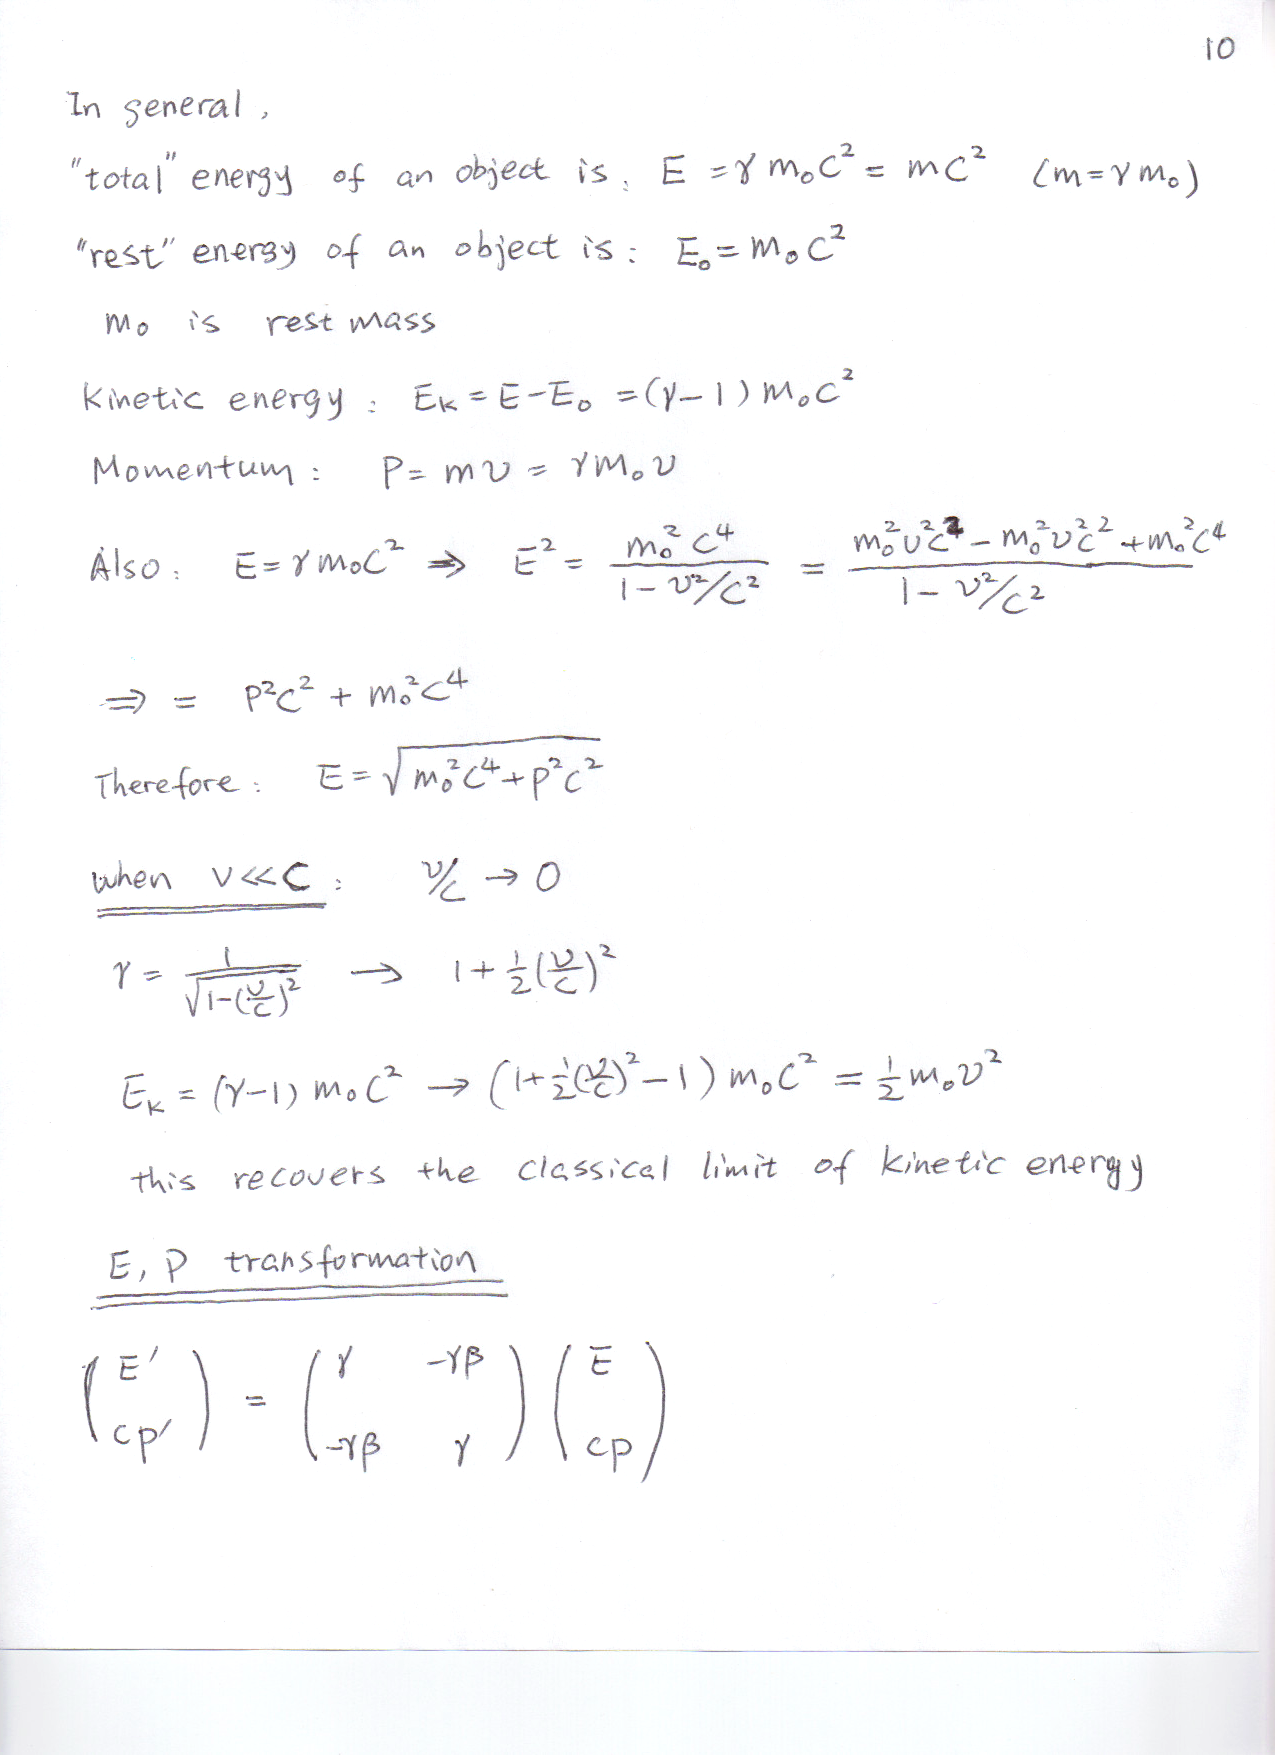 10
In general,
"total" energy of an object is: E = γ m₀c² = mc² (m = γ m₀)
"rest" energy of an object is: E₀ = m₀c²
m₀ is rest mass
Kinetic energy: Eₖ = E - E₀ = (γ - 1) m₀c²
Momentum: P = mv = γ m₀ v
Also: E = γ m₀c² ⇒ E² = m₀²c⁴ / (1 - v²/c²) = (m₀²v²c² - m₀²v²c² + m₀²c⁴) / (1 - v²/c²)
⇒ = p²c² + m₀²c⁴
Therefore: E = √(m₀²c⁴ + p²c²)
when v << c: v/c → 0
γ = 1 / √(1 - (v/c)²) → 1 + ½(v/c)²
Eₖ = (γ - 1) m₀c² → (1 + ½(v/c)² - 1) m₀c² = ½ m₀v²
this recovers the classical limit of kinetic energy
E, P transformation
(E′) = (γ -γβ) (E)
(cp′) (-γβ γ) (cp)